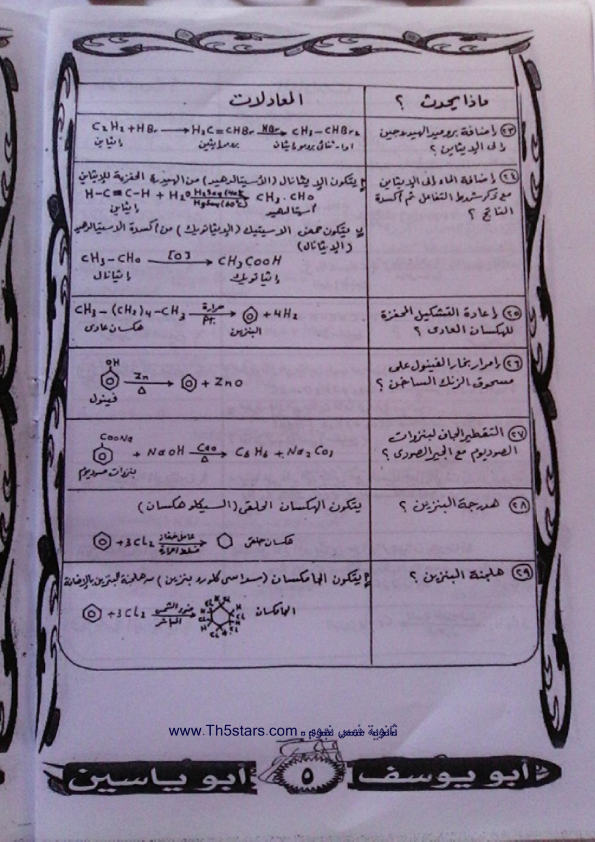 ماذا يحدث ؟
المعادلات
٢٣ إضافة بروميد الهيدروجين
إلى الإيثاين ؟
C2H2 + HBr → H2C = CHBr HBr → CH3 - CHBr2
إيثاين
٢٤ إضافة الماء إلى الإيثاين
مع ذكر شروط التفاعل ثم أكسدة
الناتج ؟
يتكون الإيثانال (الأسيتالدهيد) من الهيدرة الحفزية للإيثاين
H - C ≡ C - H + H2O → CH3 . CHO
إيثاين
أسيتالدهيد
يتكون حمض الاسيتيك (الإيثانويك) من أكسدة الاسيتالدهيد
(الإيثانال)
CH3 - CHO [O] → CH3COOH
إيثانال
إيثانويك
٢٥ إعادة التشكيل الحفزة
للهكسان العادى ؟
CH3 - (CH2)4 - CH3 حرارة Pt. → + 4H2
هكسان عادى
البنزين
٢٦ إمرار بخار الفينول على
مسحوق الزنك الساخن ؟
OH
Zn Δ → + ZnO
فينول
٢٧ التقطير الجاف لبنزوات
الصوديوم مع الجير الصودى ؟
COONa
+ NaOH CaO Δ → C6H6 + Na2CO3
بنزوات صوديوم
٢٨ هدرجة البنزين ؟
يتكون الهكسان الحلقى (السيكلو هكسان)
+ 3Cl2 عامل حفاز → هكسان حلقى
٢٩ هلجنة البنزين ؟
يتكون الجامكسان (سداسى كلورو بنزين) من هلجنة البنزين بالإضافة
+ 3Cl2 ضوء الشمس المباشر → الجامكسان
ثانوية خمس نجوم - www.Th5stars.com
أبو يوسف ٥ أبو ياسين